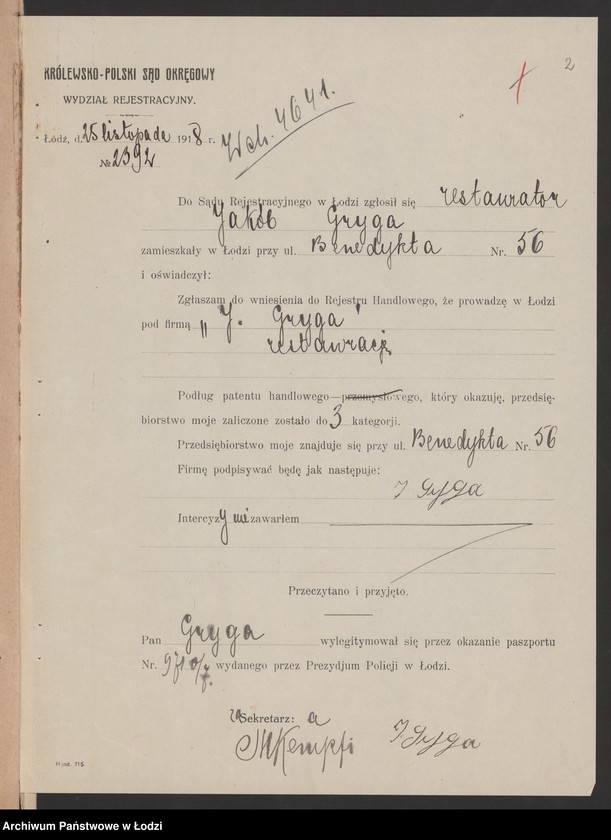 2
KRÓLEWSKO-POLSKI SĄD OKRĘGOWY
WYDZIAŁ REJESTRACYJNY.
Łódź, d. 25 listopada 1918 r.
№ 2392
Wch. 4641.
Do Sądu Rejestracyjnego w Łodzi zgłosił się restaurator
Jakób Gryga
zamieszkały w Łodzi przy ul. Benedykta Nr. 56
i oświadczył:
Zgłaszam do wniesienia do Rejestru Handlowego, że prowadzę w Łodzi
pod firmą „J. Gryga"
restauracją
Podług patentu handlowego—przemysłowego, który okazuję, przedsię-
biorstwo moje zaliczone zostało do 3 kategorji.
Przedsiębiorstwo moje znajduje się przy ul. Benedykta Nr. 56
Firmę podpisywać będę jak następuje:
J Gryga
Intercyzy nie zawarłem
Przeczytano i przyjęto.
Pan Gryga wylegitymował się przez okazanie paszportu
Nr. wydanego przez Prezydjum Policji w Łodzi.
Sekretarz: a
MKempfi
J Gryga
Hand. 715.
Archiwum Państwowe w Łodzi